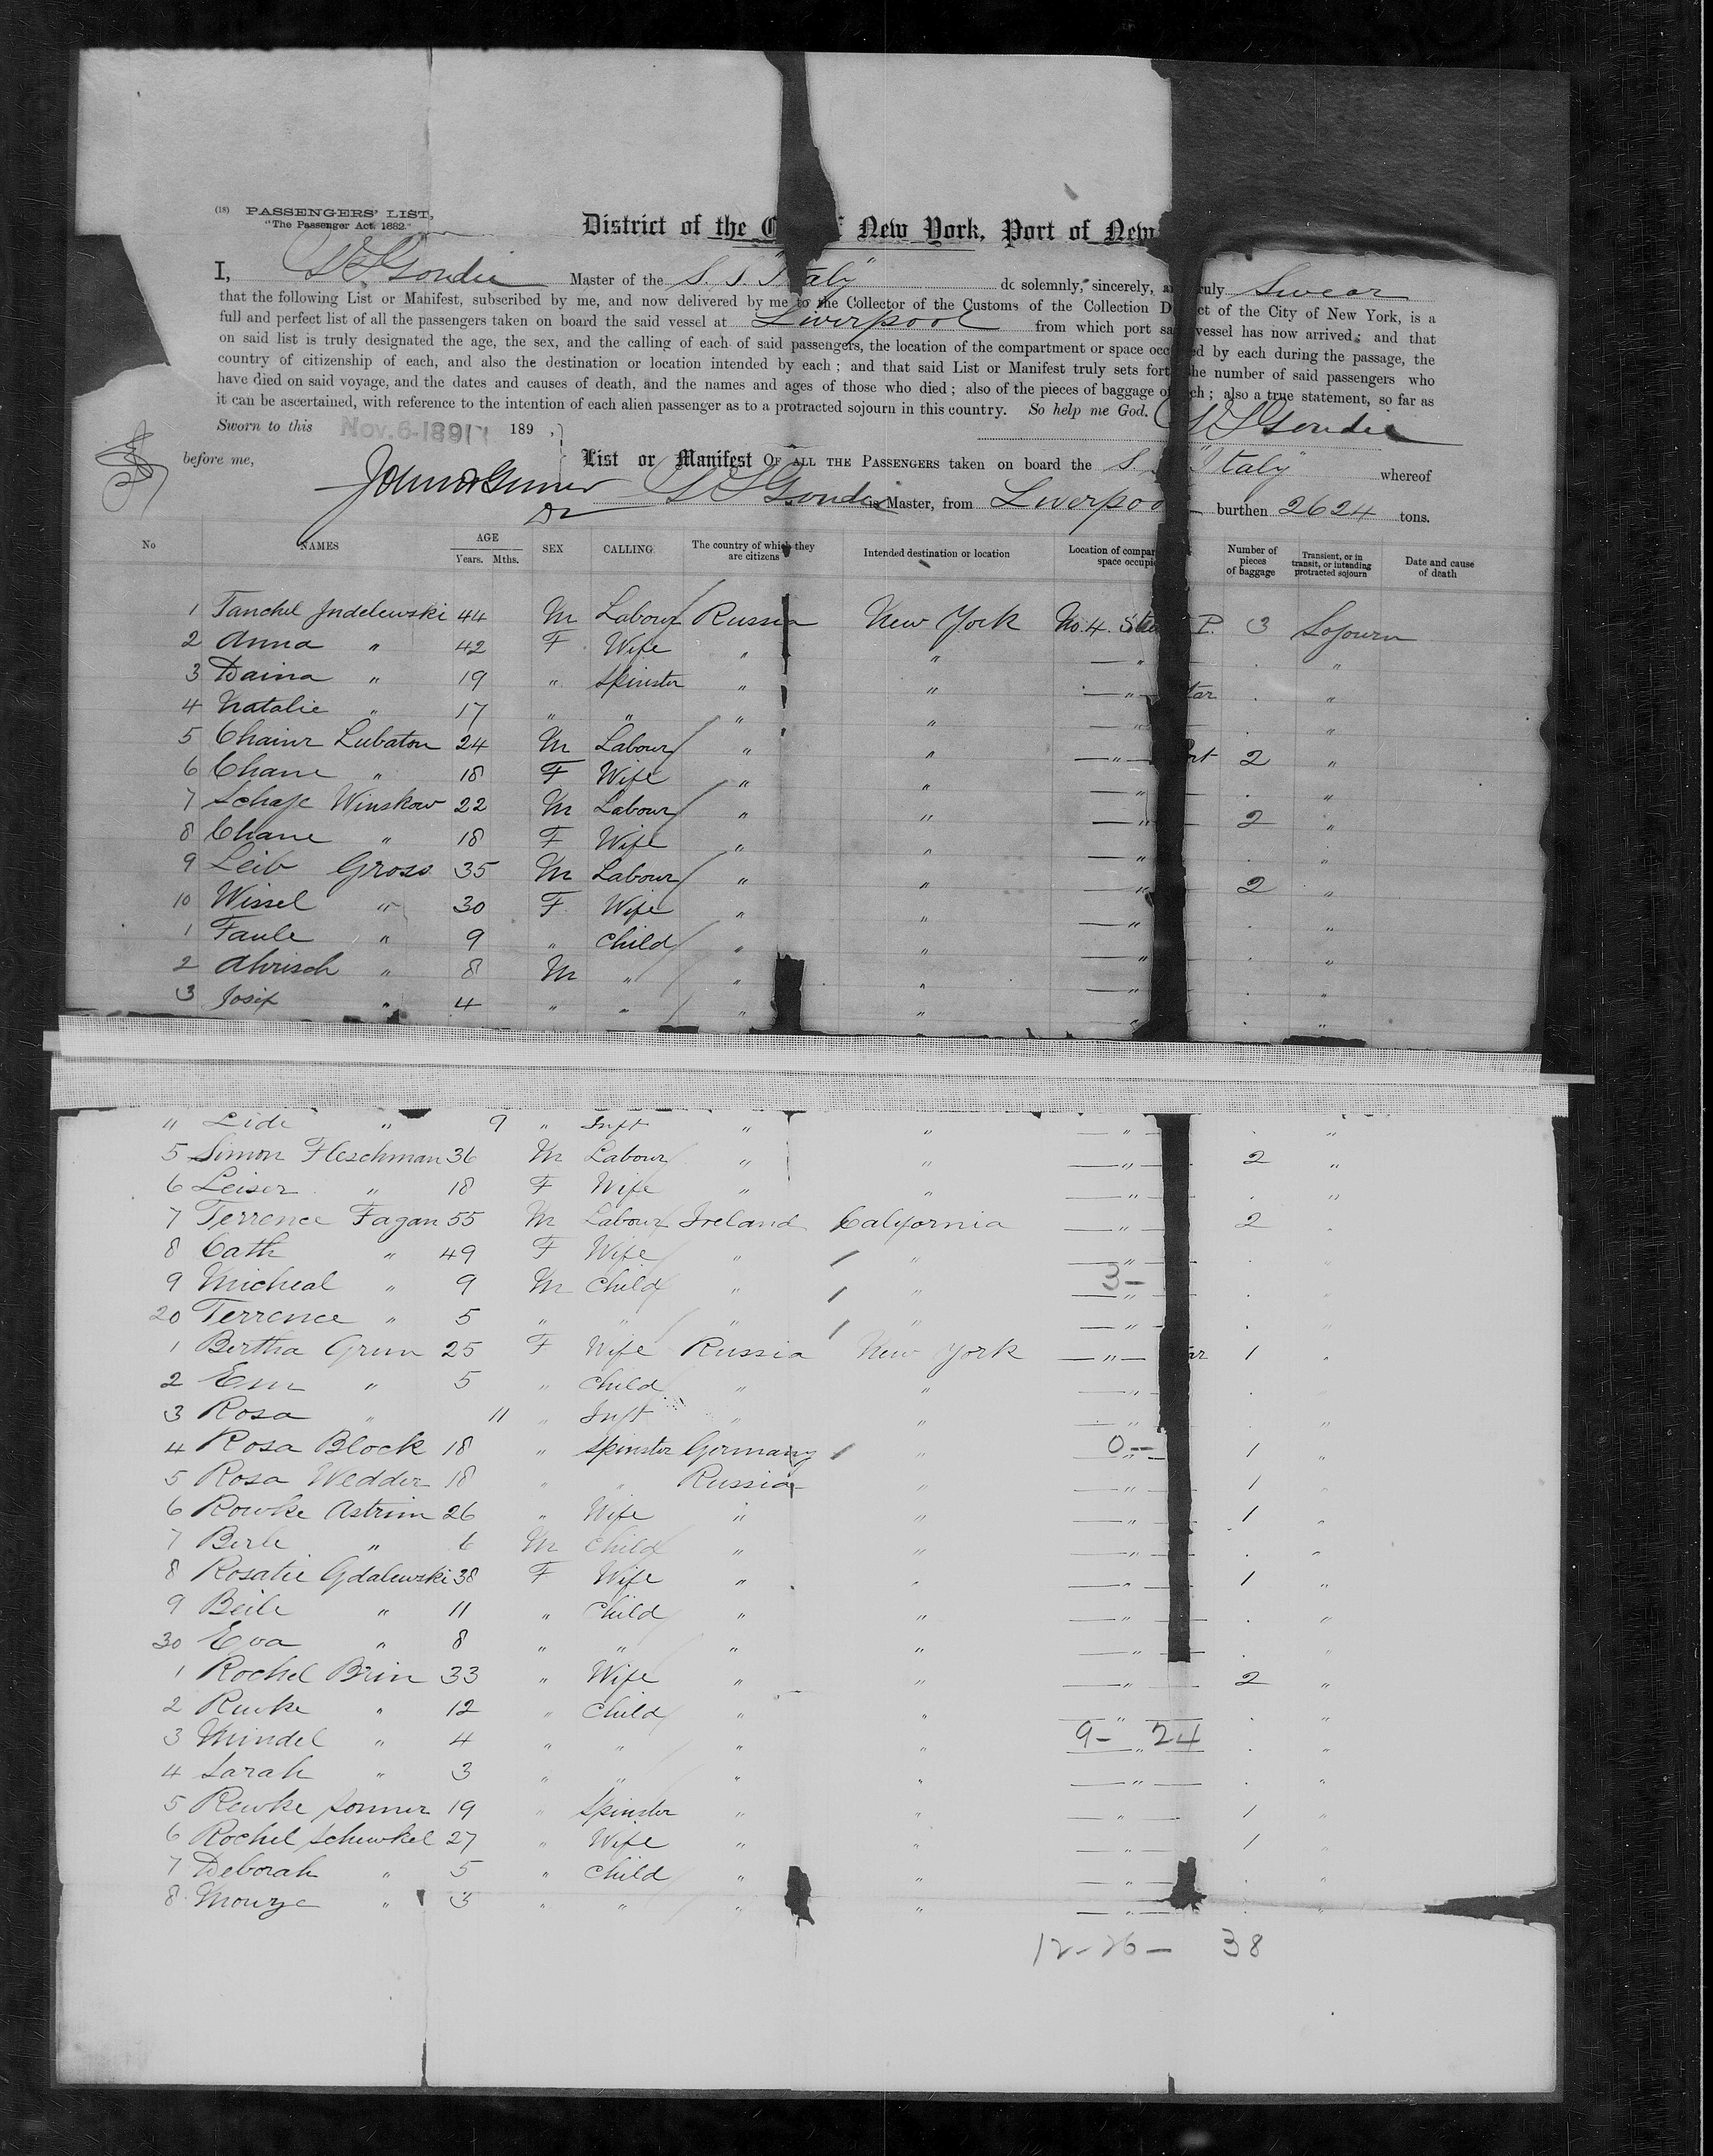 (18) PASSENGERS' LIST,
"The Passenger Act, 1882."
District of the C f New York, Port of New
I, Goudie Master of the S. S. "Italy" do solemnly, sincerely, a ruly Swear
that the following List or Manifest, subscribed by me, and now delivered by me to the Collector of the Customs of the Collection D ct of the City of New York, is a
full and perfect list of all the passengers taken on board the said vessel at Liverpool from which port sa vessel has now arrived; and that
on said list is truly designated the age, the sex, and the calling of each of said passengers, the location of the compartment or space occ ed by each during the passage, the
country of citizenship of each, and also the destination or location intended by each; and that said List or Manifest truly sets fort he number of said passengers who
have died on said voyage, and the dates and causes of death, and the names and ages of those who died; also of the pieces of baggage o ch; also a true statement, so far as
it can be ascertained, with reference to the intention of each alien passenger as to a protracted sojourn in this country. So help me God. Goudie
Sworn to this Nov. 6-1891 189 ,
before me, List or Manifest OF ALL THE PASSENGERS taken on board the S. "Italy" whereof
Goudie is Master, from Liverpoo burthen 2624 tons.
No NAMES AGE Years. Mths. SEX CALLING The country of which they are citizens Intended destination or location Location of compar space occupi Number of pieces of baggage Transient, or in transit, or intending protracted sojourn Date and cause of death
1 Tanchel Indelewski 44 M Labour Russia New York No. 4. Ste P. 3 Sojourn
2 Anna " 42 F Wife " " — " — . "
3 Daina " 19 " Spinster " " — " tar . "
4 Natalie " 17 " " " " — " — . "
5 Chaim Lubaton 24 M Labour " " — " — rt 2 "
6 Chane " 18 F Wife " " — " — . "
7 Schaje Winskow 22 M Labour " " — " — 2 "
8 Chane " 18 F Wife " " — " — . "
9 Leib Gross 35 M Labour " " — " — 2 "
10 Wissel " 30 F Wife " " — " — . "
1 Faule " 9 " Child " " — " — . "
2 Ahrisch " 8 M " " " — " — . "
3 Josif 4 " " " " — " — . "
" Lide " 9 " Inft " " — " — . "
5 Simon Fleschman 36 M Labour " " — " — 2 "
6 Leiser " 18 F Wife " " — " — . "
7 Terrence Fagan 55 M Labour Ireland California — " — 2 "
8 Cath " 49 F Wife " / " — " — . "
9 Micheal " 9 M Child " / " 3 — " — . "
20 Terrence " 5 " " " / " — " — . "
1 Bertha Grun 25 F Wife Russia New York — " — ar 1 "
2 Em " 5 " Child " " — " — . "
3 Rosa " 11 " Inft " " — " — . "
4 Rosa Block 18 " Spinster Germany / " 0 — " — 1 "
5 Rosa Wedder 18 " " Russia " — " — 1 "
6 Rowke Astrim 26 " Wife " " — " — 1 "
7 Berle " 6 M Child " " — " — . "
8 Rosatie Gdalewski 38 F Wife " " — " — 1 "
9 Beile " 11 " Child " " — " — . "
30 Eva " 8 " " " " — " — . "
1 Rochel Brin 33 " Wife " " — " — 2 "
2 Rewke " 12 " Child " " — " — . "
3 Mindel " 4 " " " " 9 - 24 . "
4 Sarah " 3 " " " " — " — . "
5 Rewke Sonner 19 " Spinster " " — " — 1 "
6 Rochel Schewkel 27 " Wife " " — " — 1 "
7 Deborah " 5 " Child " " — " — . "
8 Mowze " 3 " " " " — " — . "
12 - 26 — 38